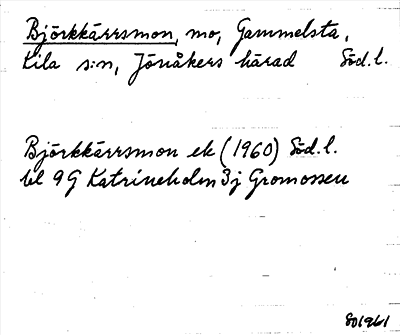 Björkkärrsmon, mo, Gammelsta,
Kila s:n, Jönåkers härad Söd. l.
Björkkärrsmon ek (1960) Söd. l.
bl 9G Katrineholm 3j Gromossen
801961